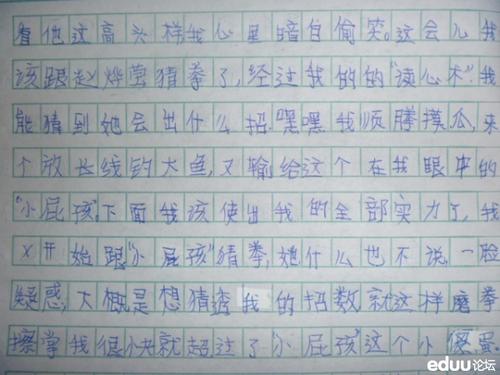 看他这高头样我心里暗自偷笑。这会儿我
该跟赵烨莹猜拳了,经过我的的“读心术”我
能猜到她会出什么招.嘿嘿我顺藤摸瓜,来
个放长线钓大鱼,又输给这个在我眼中的
“小屁孩”,下面我该使出我的全部实力了,我
又开始跟“小屁孩”猜拳,她什么也不说,一脸
疑惑,大概是想猜透我的招数就这样磨拳
擦掌我很小夬就超过了“小屁孩”这个小傻蛋.
eduu论坛